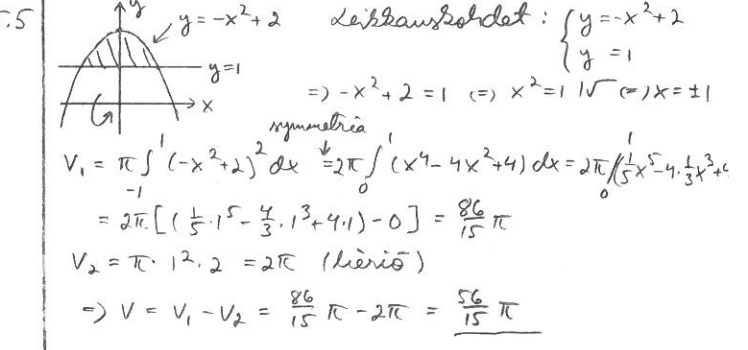 .5
y
y = -x² + 2
y = 1
x
Leikkauskohdet : { y = -x² + 2
y = 1
=) -x² + 2 = 1 (=) x² = 1 |√ (=) x = ±1
symmetria
V₁ = π∫₋₁¹ (-x²+2)² dx = 2π∫₀¹ (x⁴ - 4x² + 4) dx = 2π/₀¹(1/5 x⁵ - 4·1/3 x³ +
= 2π[(1/5·1⁵ - 4/3·1³ + 4·1) - 0] = 86/15 π
V₂ = π·1²·2 = 2π (lieriö)
=) V = V₁ - V₂ = 86/15 π - 2π = 56/15 π